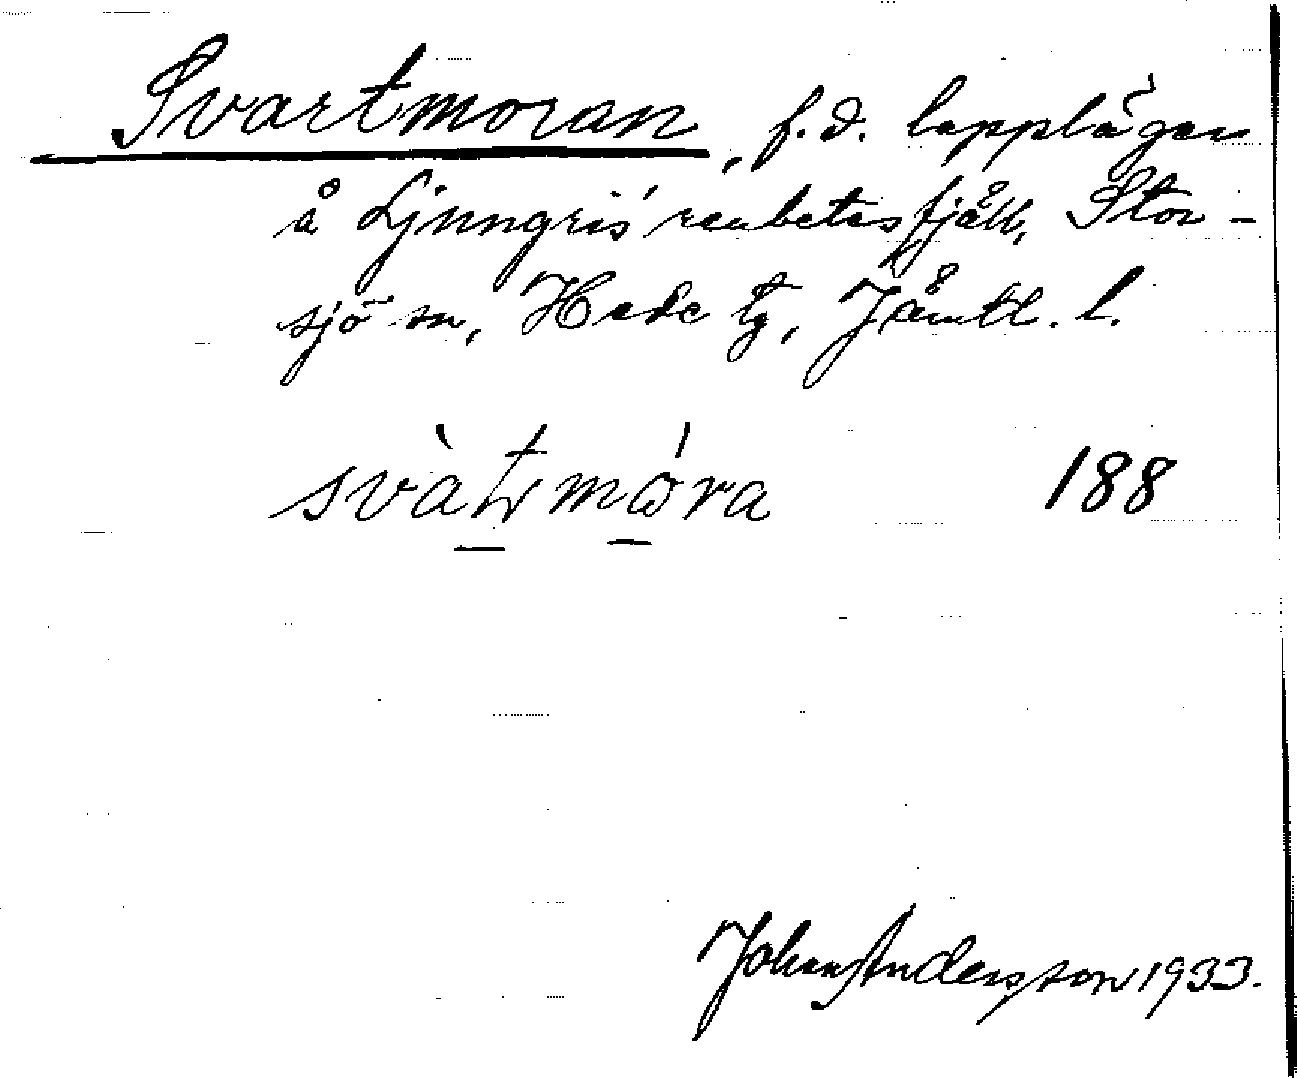 Svartmoran, f.d. lappläger
å Ljungris' renbetesfjäll, Stor-
sjö sn, Hede tg, Jämtl. l.
svàtmóra 188
Johan Andersson 1933.